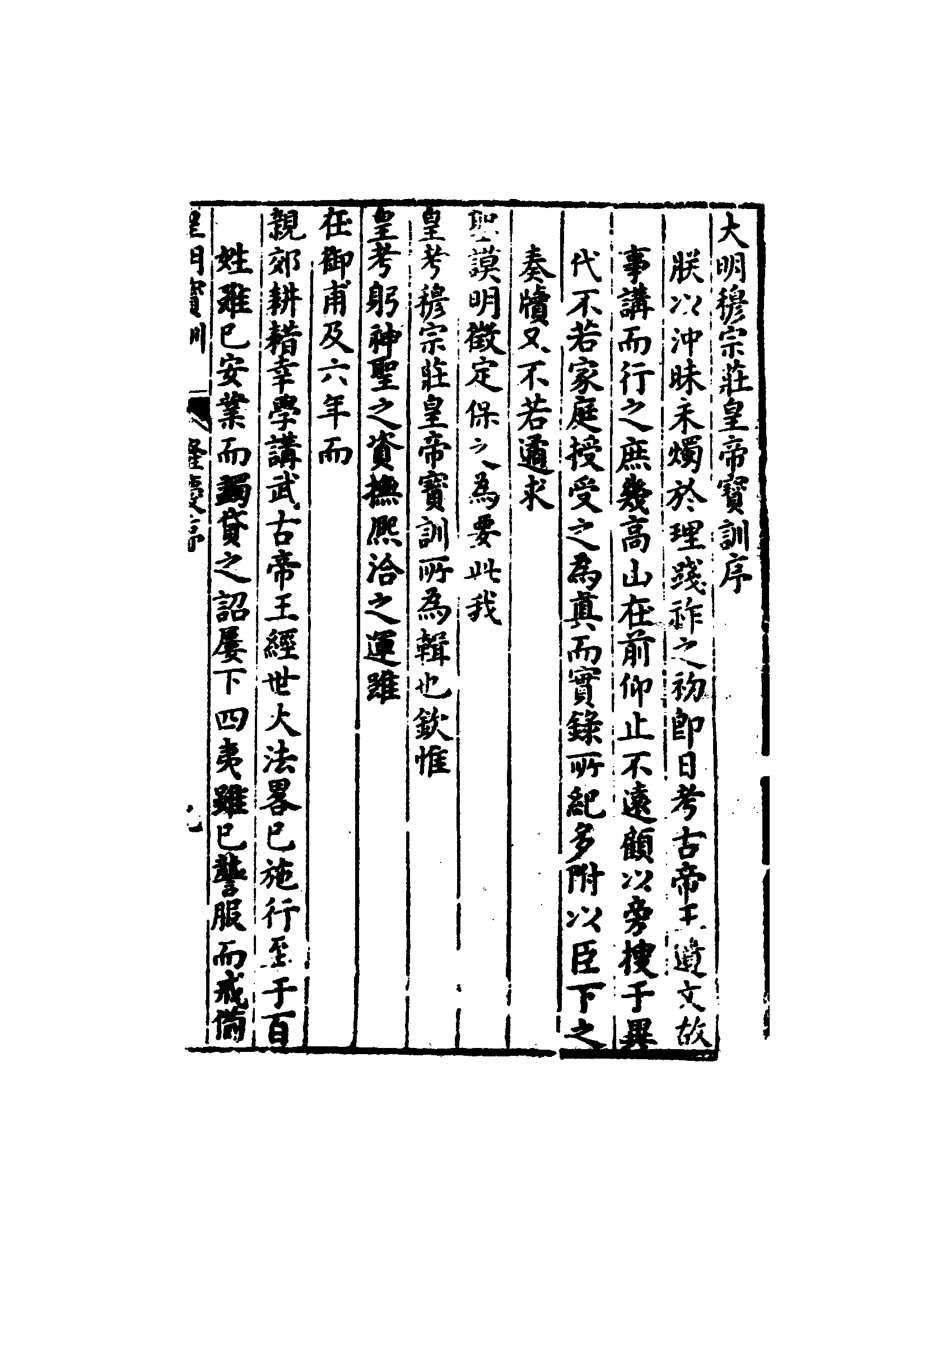 大明穆宗莊皇帝寶訓序
朕以沖昧未燭於理踐祚之初卽日考古帝王遺文故
事講而行之庶幾高山在前仰止不遠顧以旁搜于異
代不若家庭授受之為真而實錄所紀多附以臣下之
奏牘又不若遹求
聖謨明徵定保之為要此我
皇考穆宗莊皇帝寶訓所為輯也欽惟
皇考躬神聖之資撫熙洽之運雖
在御甫及六年而
親郊耕耤幸學講武古帝王經世大法畧已施行至于百
姓雖已安業而蠲貸之詔屢下四夷雖已讋服而戒備
皇明寶訓 隆慶序